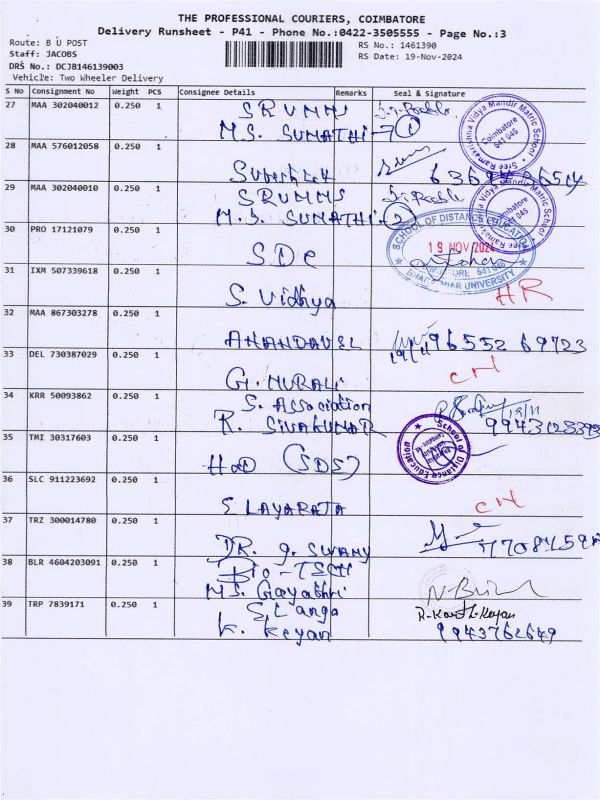 THE PROFESSIONAL COURIERS, COIMBATORE
Delivery Runsheet - P41 - Phone No.:0422-3505555 - Page No.:3
Route: B U POST
RS No.: 1461390
Staff: JACOBS
RS Date: 19-Nov-2024
DRS No.: DCJB146139003
Vehicle: Two Wheeler Delivery
S No Consignment No Weight PCS Consignee Details Remarks Seal & Signature
27 MAA 302040012 0.250 1 SRVMMS
M.S. SUMATHI - 1
Sree Ramakrishna Vidya Mandir Matric School
Coimbatore
641 046
28 MAA 576012058 0.250 1
29 MAA 302040010 0.250 1 SRVMMS
M.S. SUMATHI. 2
Sree Ramakrishna Vidya Mandir Matric School
Coimbatore
641 046
30 PRO 17121079 0.250 1 SDE
SCHOOL OF DISTANCE EDUCATION
19 NOV 2024
641 046
BHARATHIAR UNIVERSITY
31 IXM 507339618 0.250 1 S. Vidhya HR
32 MAA 867303278 0.250 1 ANANDAVEL 96552 69723
19/11
33 DEL 730387029 0.250 1 G. MURALI CH
34 KRR 50093862 0.250 1 S. Association
R. SIVAKUMAR 19/11
35 TMI 30317603 0.250 1 HOD (SDS)
School of Distance Education
36 SLC 911223692 0.250 1 S LAYARATA CH
37 TRZ 300014780 0.250 1 DR. G. SWAMY
38 BLR 4604203091 0.250 1 BIO-TECH
MS. Gayathri
39 TRP 7839171 0.250 1 S. Langa
K. Keyan
R. Karthikeyan
9943762649